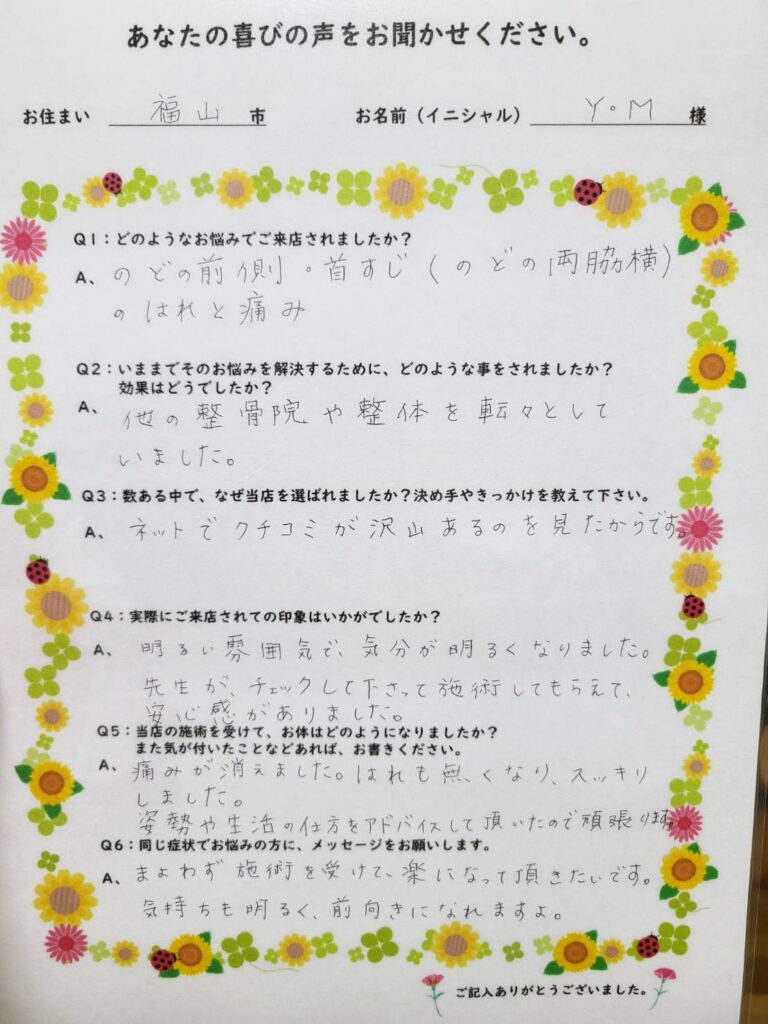 あなたの喜びの声をお聞かせください。
お住まい 福山 市 お名前（イニシャル） Y・M 様
Q1：どのようなお悩みでご来店されましたか？
A、のどの前側・首すじ(のどの両脇横)
のはれと痛み
Q2：いままでそのお悩みを解決するために、どのような事をされましたか？
効果はどうでしたか？
A、他の整骨院や整体を転々として
いました。
Q3：数ある中で、なぜ当店を選ばれましたか？決め手やきっかけを教えて下さい。
A、ネットでクチコミが沢山あるのを見たからです。
Q4：実際にご来店されての印象はいかがでしたか？
A、明るい雰囲気で、気分が明るくなりました。
先生が、チェックして下さって施術してもらえて、
安心感がありました。
Q5：当店の施術を受けて、お体はどのようになりましたか？
また気が付いたことなどあれば、お書きください。
A、痛みが消えました。はれも無くなり、スッキリ
しました。
姿勢や生活の仕方をアドバイスして頂いたので頑張ります。
Q6：同じ症状でお悩みの方に、メッセージをお願いします。
A、まよわず施術を受けて、楽になって頂きたいです。
気持ちも明るく、前向きになれますよ。
ご記入ありがとうございました。